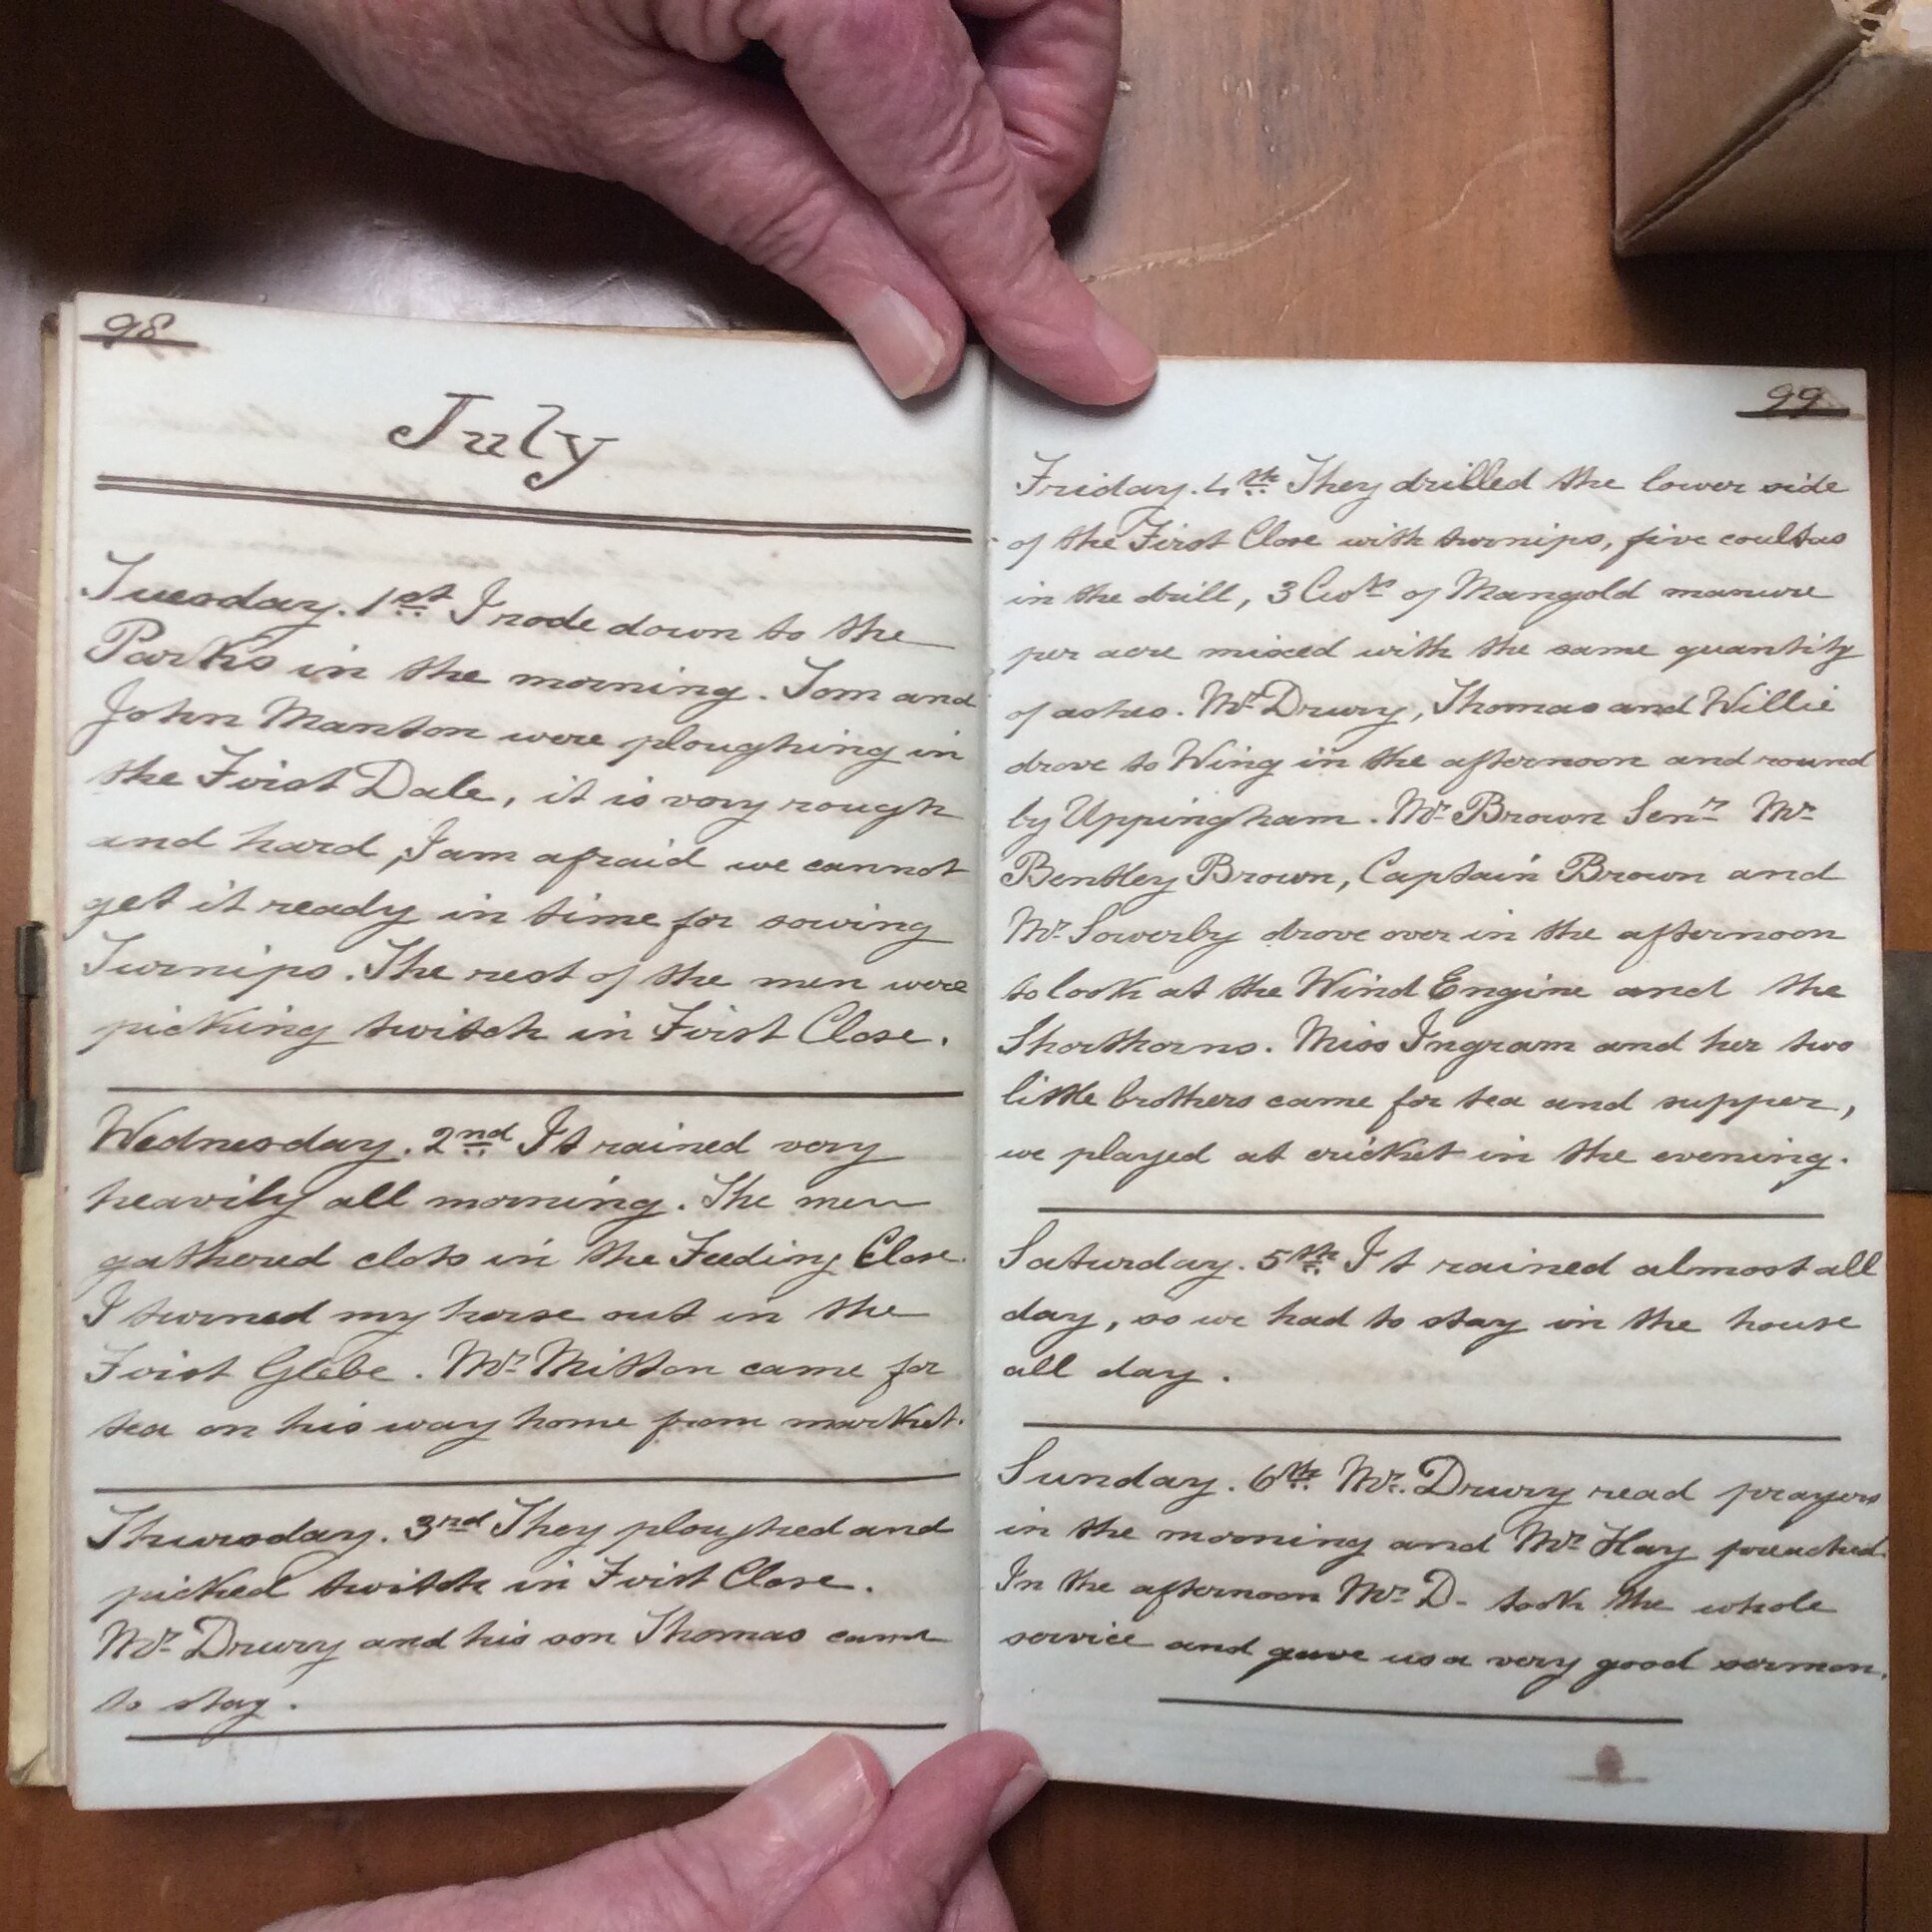 98
July
Tuesday. 1st I rode down to the
Parks in the morning. Tom and
John Manton were ploughing in
the Foist Dale, it is very rough
and hard, I am afraid we cannot
get it ready in time for sowing
Turnips. The rest of the men were
picking twitch in Foist Close.
Wednesday. 2nd It rained very
heavily all morning. The men
gathered clots in the Feeding Close.
I turned my horse out in the
Foist Glebe. Mr. Mitton came for
tea on his way home from market.
Thursday. 3rd They ploughed and
picked twitch in Foist Close.
Mr. Drury and his son Thomas came
to stay.
99
Friday. 4th They drilled the lower side
of the Foist Close with turnips, five coultas
in the drill, 3 Cwts. of Mangold manure
per acre mixed with the same quantity
of ashes. Mr. Drury, Thomas and Willie
drove to Wing in the afternoon and round
by Uppingham. Mr. Brown Senr. Mr.
Bentley Brown, Captain Brown and
Mr. Sowerby drove over in the afternoon
to look at the Wind Engine and the
Shorthorns. Miss Ingram and her two
little brothers came for tea and supper,
we played at cricket in the evening.
Saturday. 5th It rained almost all
day, so we had to stay in the house
all day.
Sunday. 6th Mr. Drury read prayers
in the morning and Mr. Hay preached.
In the afternoon Mr. D- took the whole
service and gave us a very good sermon.